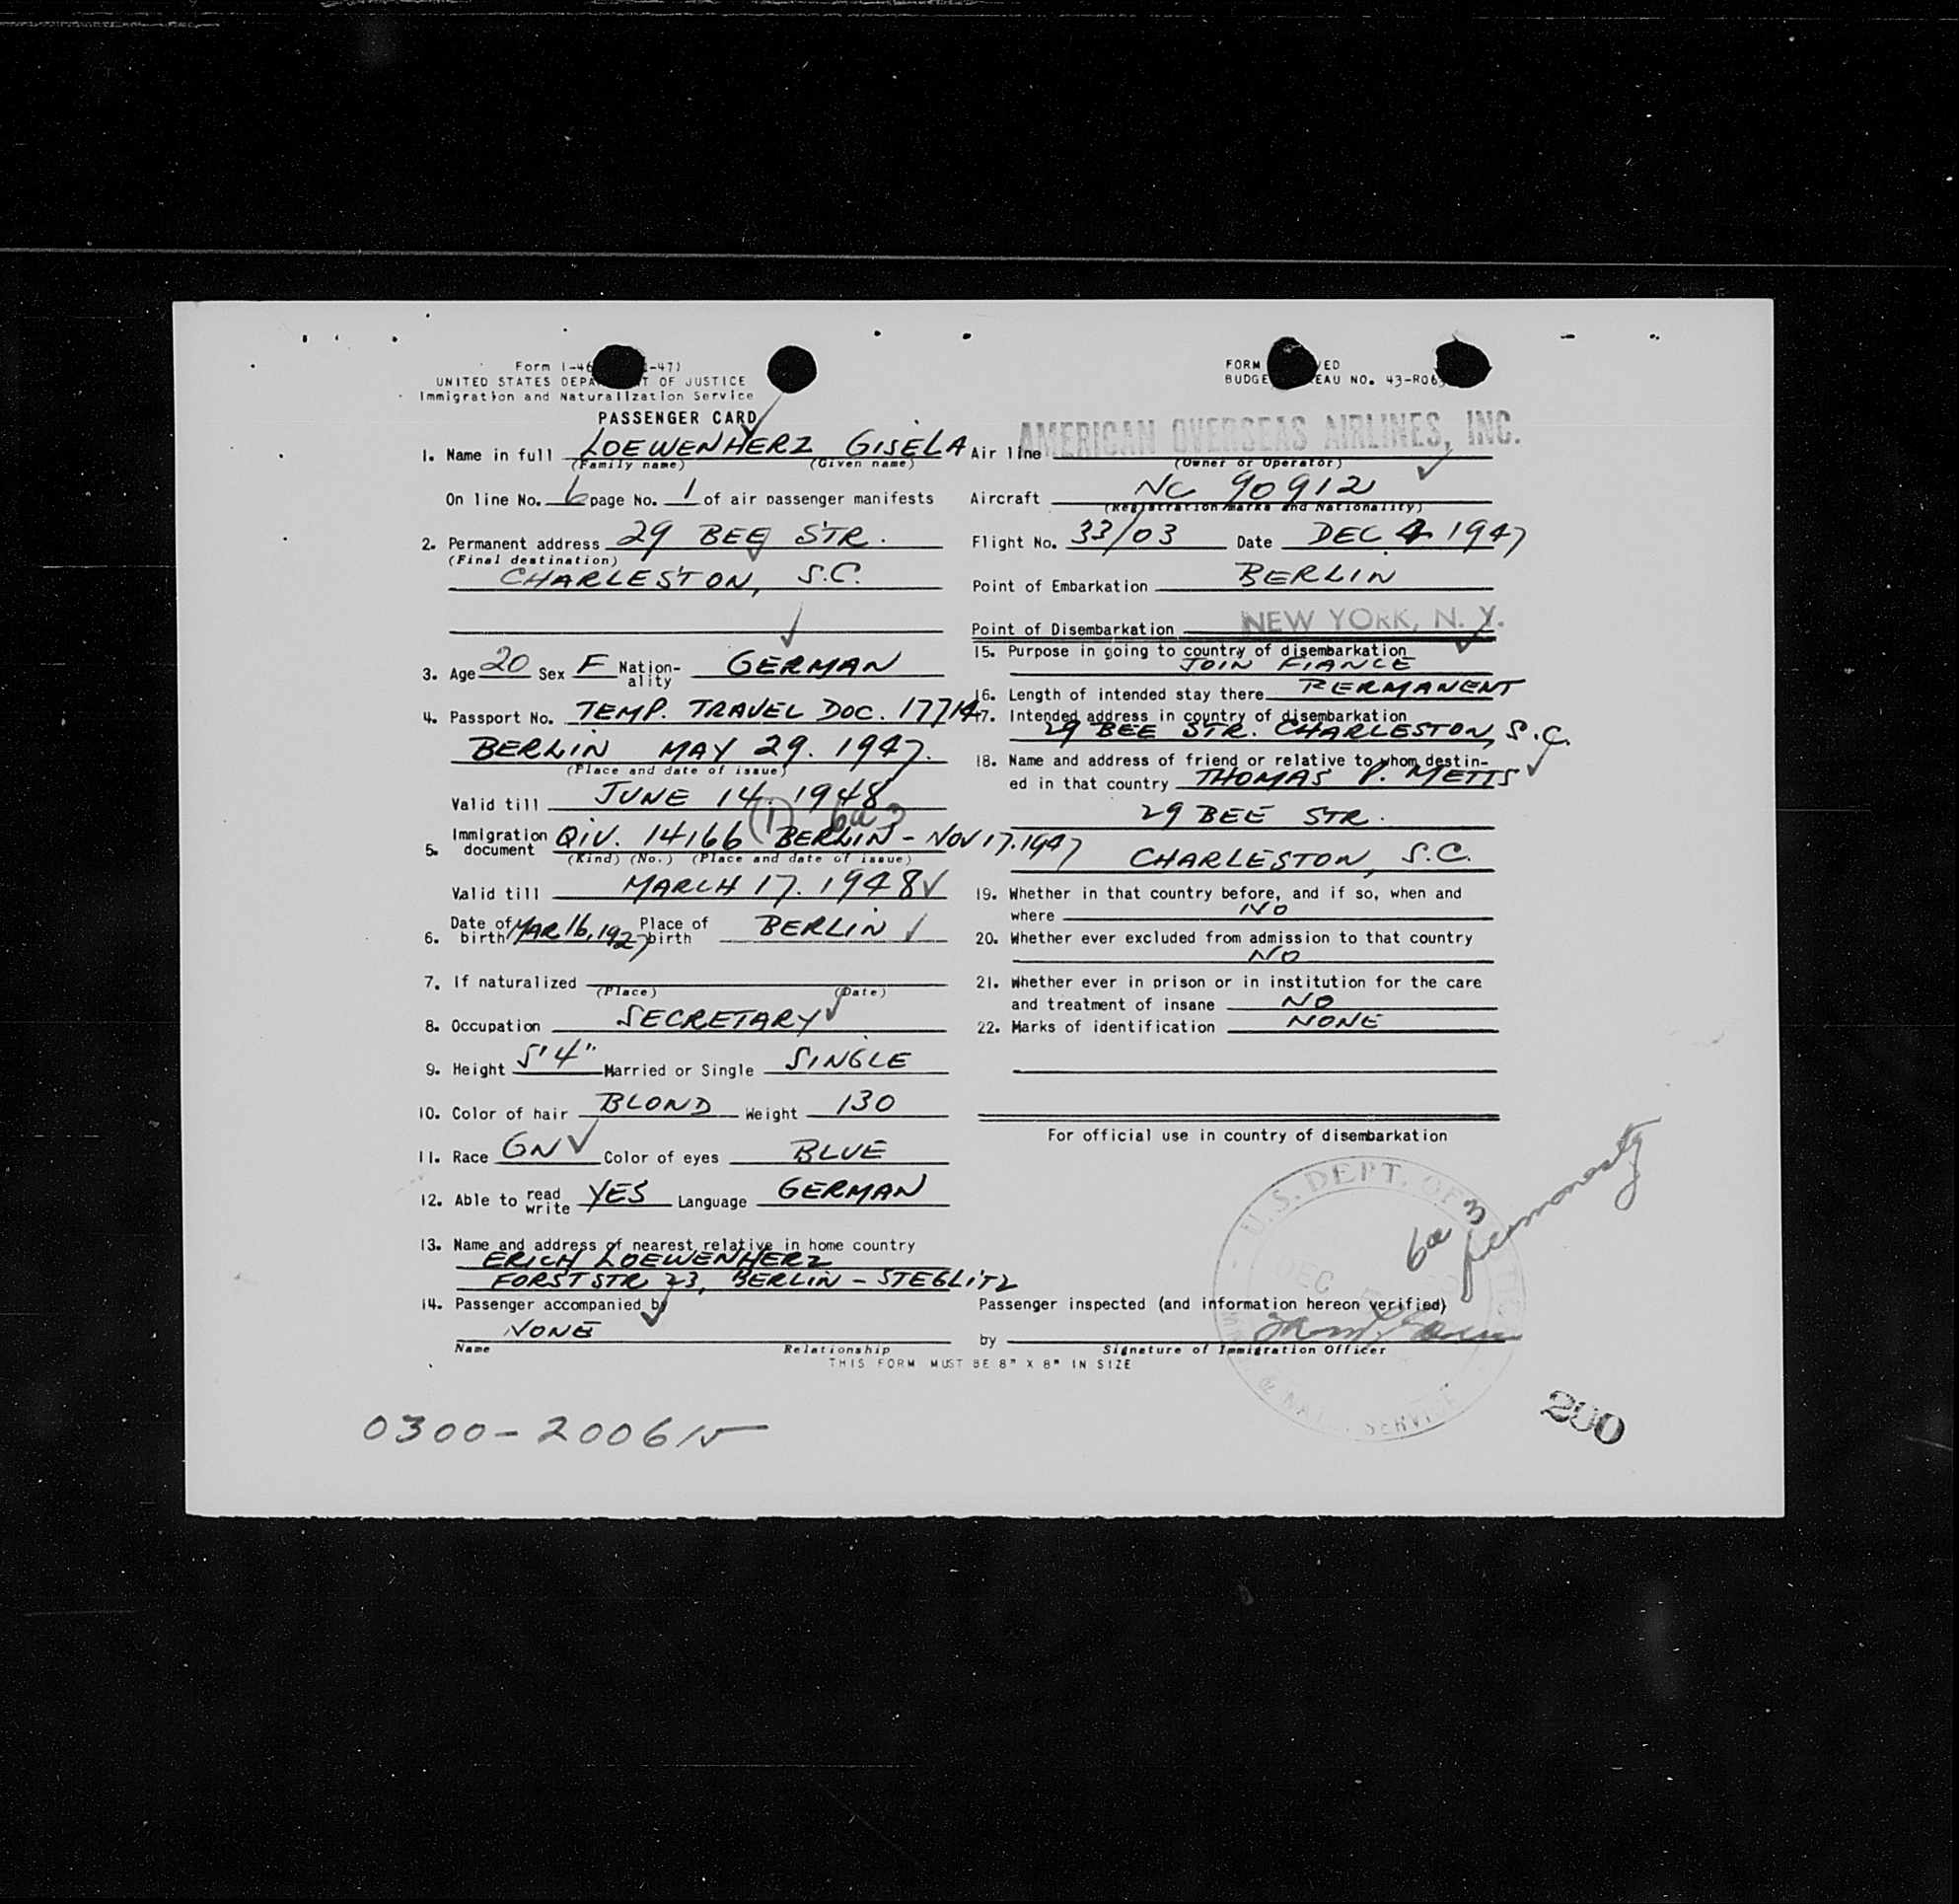 Form I-46 -47)
UNITED STATES DEPA T OF JUSTICE
Immigration and Naturalization Service
PASSENGER CARD
1. Name in full LOEWENHERZ GISELA
(Family name) (Given name)
On line No. 6 page No. 1 of air passenger manifests
2. Permanent address 29 BEE STR.
(Final destination)
CHARLESTON, S.C.
3. Age 20 Sex F Nation-ality GERMAN
4. Passport No. TEMP. TRAVEL DOC. 17714
BERLIN MAY 29. 1947.
(Place and date of issue)
Valid till JUNE 14. 1948
(1) 6a3
5. Immigration document QIV. 14166 BERLIN - NOV 17. 1947
(Kind) (No.) (Place and date of issue)
Valid till MARCH 17. 1948
6. Date of birth MAR 16, 1927 Place of birth BERLIN
7. If naturalized
(Place) (Date)
8. Occupation SECRETARY
9. Height 5'4" Married or Single SINGLE
10. Color of hair BLOND Weight 130
11. Race GN Color of eyes BLUE
12. Able to read write YES Language GERMAN
13. Name and address of nearest relative in home country
ERICH LOEWENHERZ
FORSTSTR 23, BERLIN - STEGLITZ
14. Passenger accompanied by
NONE
Name Relationship
FORM VED
BUDGE EAU NO. 43-R065
Air line AMERICAN OVERSEAS AIRLINES, INC.
(Owner or Operator)
Aircraft NC 90912
(Registration marks and Nationality)
Flight No. 33/03 Date DEC 4 1947
Point of Embarkation BERLIN
Point of Disembarkation NEW YORK, N.Y.
15. Purpose in going to country of disembarkation
JOIN FIANCE
16. Length of intended stay there PERMANENT
17. Intended address in country of disembarkation
29 BEE STR. CHARLESTON, S.C.
18. Name and address of friend or relative to whom destin-
ed in that country THOMAS P. METTS
29 BEE STR.
CHARLESTON, S.C.
19. Whether in that country before, and if so, when and
where NO
20. Whether ever excluded from admission to that country
NO
21. Whether ever in prison or in institution for the care
and treatment of insane NO
22. Marks of identification NONE
For official use in country of disembarkation
U.S. DEPT. OF
DEC
& NAT. SERVICE
6a 3
Passenger inspected (and information hereon verified)
by
Signature of Immigration Officer
THIS FORM MUST BE 8" X 8" IN SIZE
0300-200615
200